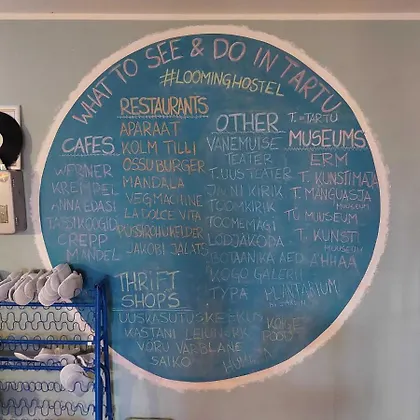 WHAT TO SEE & DO IN TARTU
#LOOMINGHOSTEL
CAFES
WERNER
KREMPEL
ANNA EDASI
TASSIKOOGID
CREPP
MANDEL
RESTAURANTS
APARAAT
KOLM TILLI
OSSU BURGER
MANDALA
VEGMACHINE
LA DOLCE VITA
PÜSSIROHUKELDER
JAKOBI JALATS
OTHER
VANEMUISE
TEATER
T. UUS TEATER
JAANI KIRIK
TOOMKIRIK
TOOMEMÄGI
LODJAKODA
BOTAANIKA AED
KOGO GALERII
TYPA
T.=TARTU
MUSEUMS
ERM
T. KUNSTIMAJA
T. MÄNGUASJA
MUUSEUM
TÜ MUUSEUM
T. KUNSTI
MUUSEUM
AHHAA
THRIFT
SHOPS
UUSKASUTUSKESKUS
KASTANI
VÕRU VARBLANE
SAIKO
HUMANA